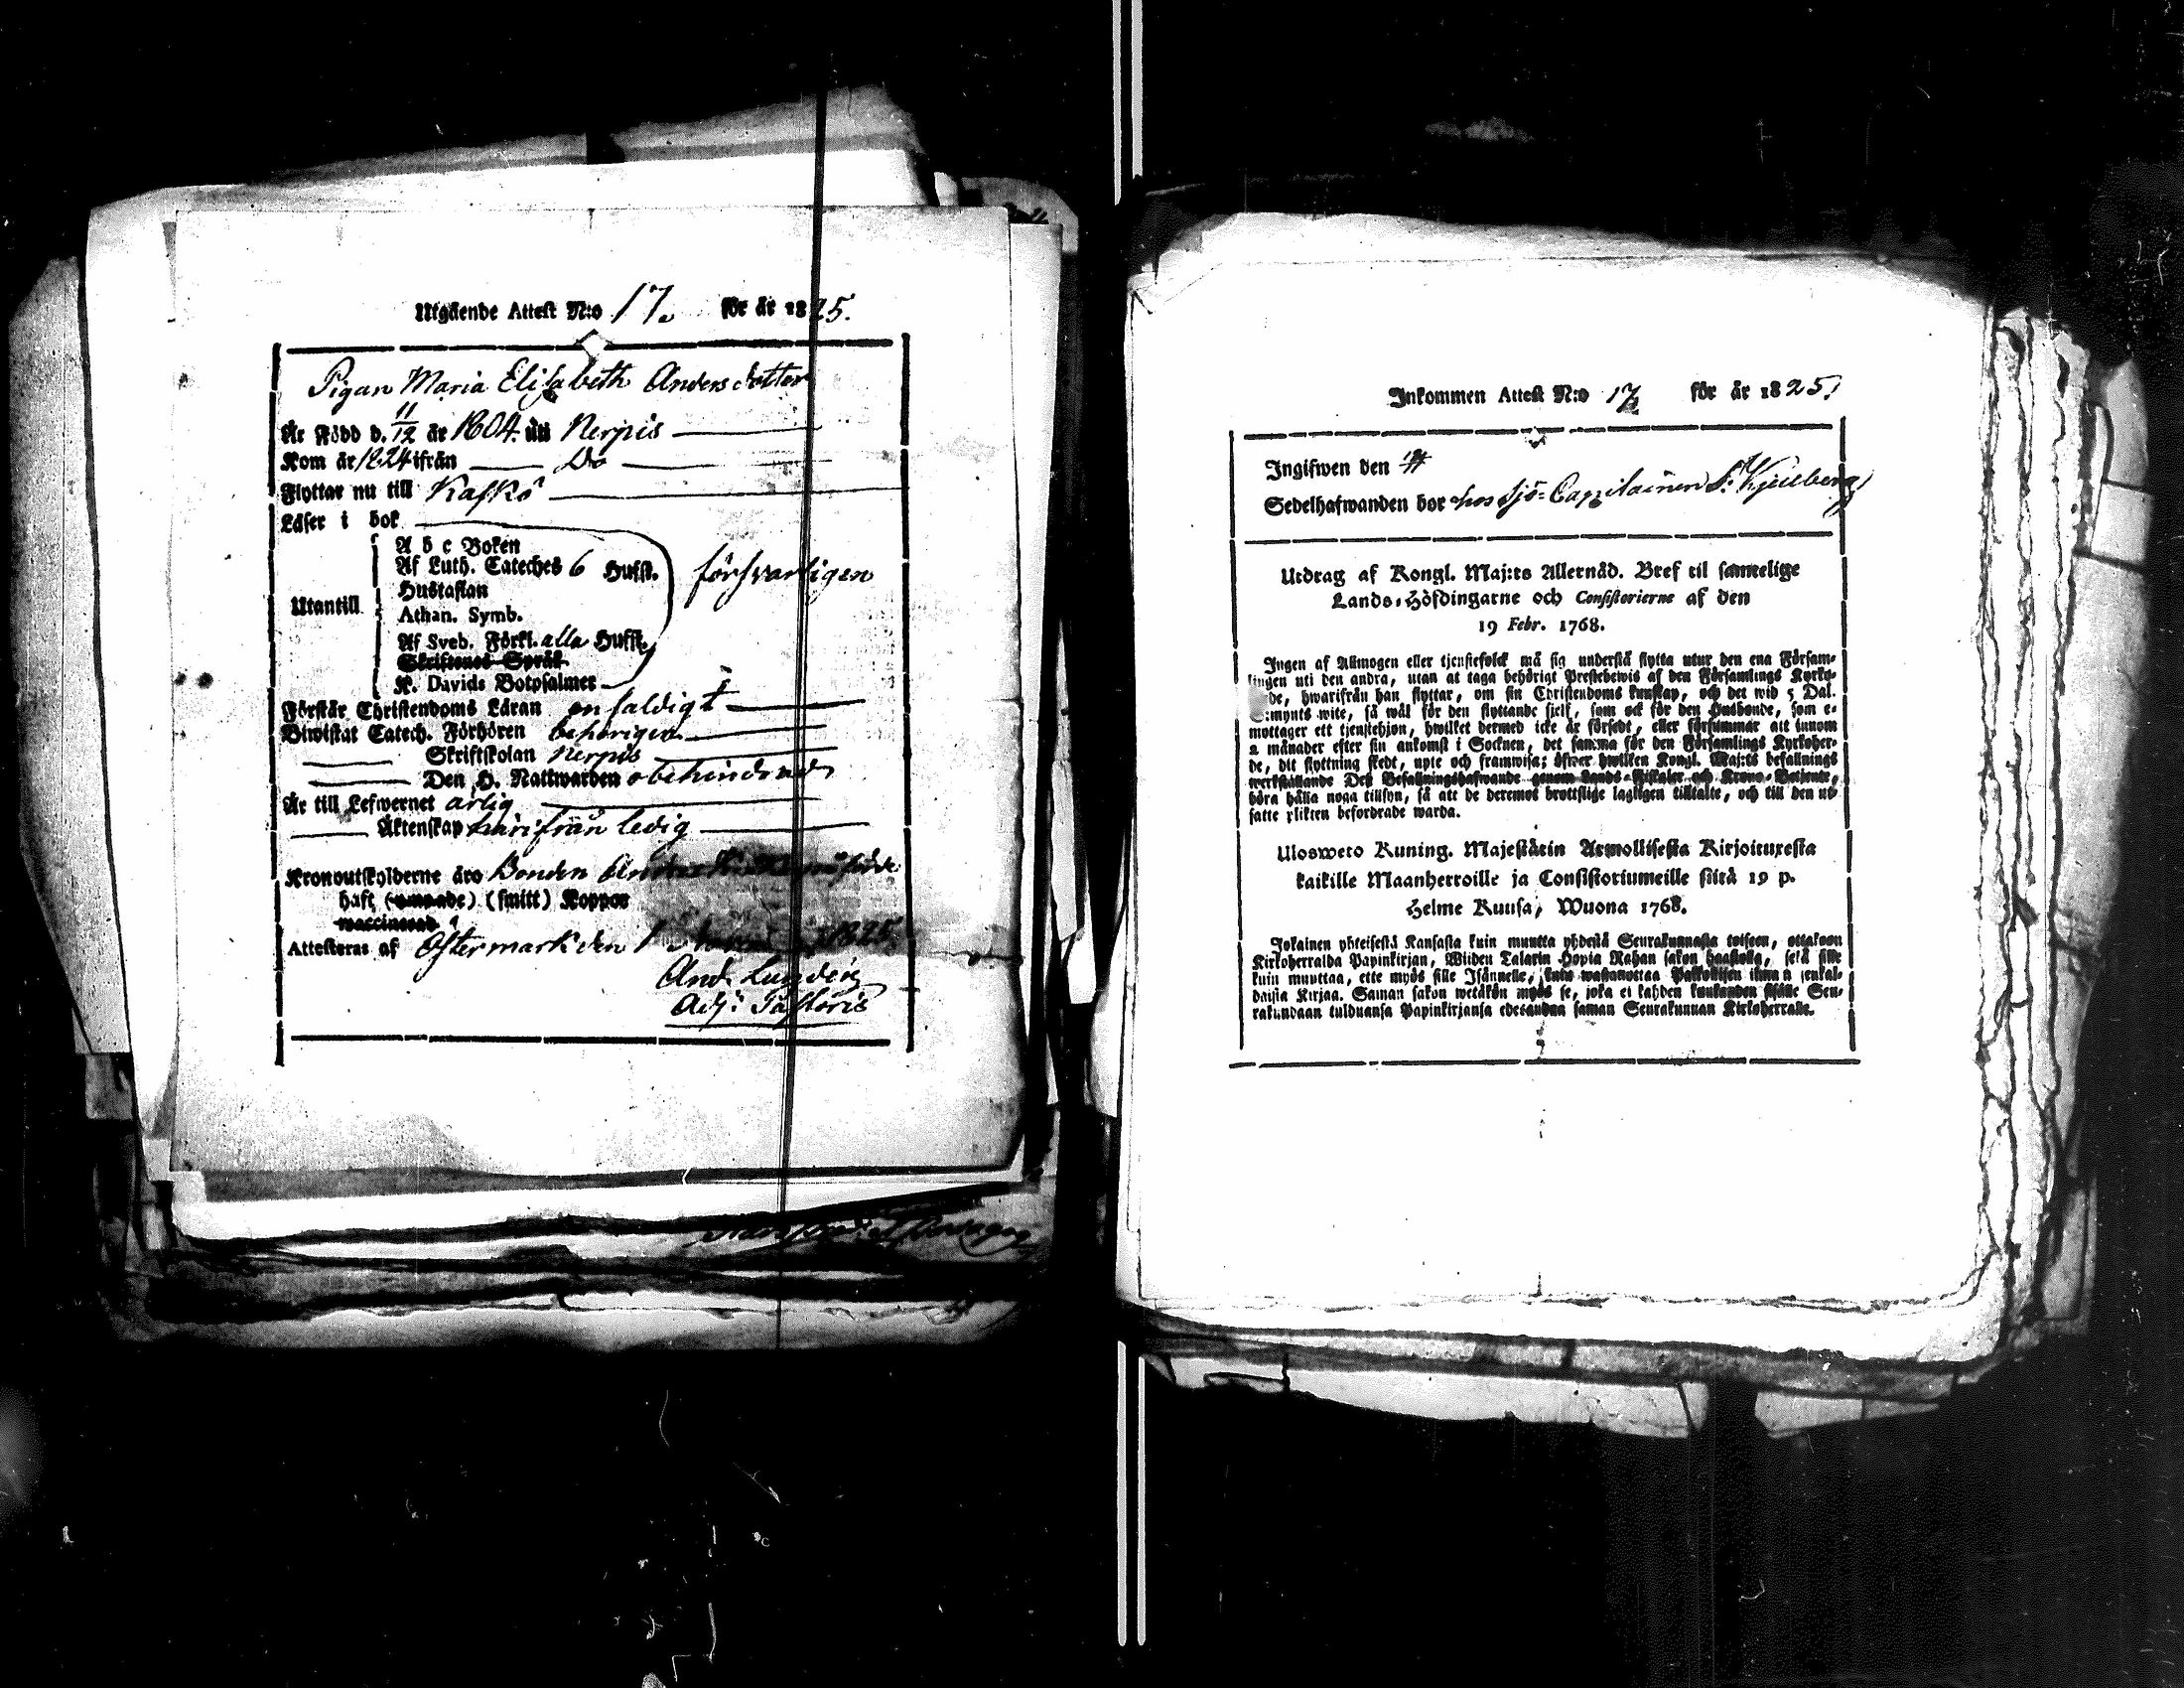 Utgående Attest N:o 17. för år 1825.
Pigan Maria Elisabeth Andersdotter
Är Född d. 11/12 år 1804. uti Nerpis
Kom år 1824 ifrån Do
Flyttar nu till Kaskö
Läser i bok
A b c Boken
Af Luth. Cateches 6 Hufst.
försvarligen
Hustaflan
Utantill
Athan. Symb.
Af Sveb. Förkl. alla Hufst.
Skriftenes Språk
K. Davids Botpsalmer
Förstår Christendoms Läran enfaldigt
Biwistat Catech. Förhören behörigen
Skriftskolan Nerpis
Den H. Nattwarden obehindrad
Är till Lefwernet ärlig
Äktenskap härifrån ledig
Kronoutskylderne äro Bonden
haft (smitt) Koppor
vaccinerad
Attesteras af Östermark den 1 1825.
And. Lundén
Adj: Pastoris
Inkommen Attest N:o 17 för år 1825.
Ingifwen den
Sedelhafwanden bor hos Sjö-Capitainen
Utdrag af Kongl. Maj:ts Allernåd. Bref til samtelige
Lands-Höfdingarne och Consistorierne af den
19 Febr. 1768.
Ingen af Allmogen eller tjenstefolck må sig understå flytta utur den ena Försam-
lingen uti den andra, utan at taga behörigt Prestebewis af den Församlings Kyrko-
de, hwarifrån han flyttar, om sin Christendoms kunskap, och det wid 5 Dal.
S:mynts wite, så wäl för den flyttande sjelf, som ock för den Husbonde, som e-
mottager ett tjenstehjon, hwilket dermed icke är försedt, eller försummar att innom
2 månader efter sin ankomst i Socknen, det samma för den Församlings Kyrkoher-
de, dit flyttning skedt, upte och framwisa; öfwer hwilken Kongl. Maj:ts befallnings
werkställande Deß Befallningshafwande genom Lands-Fiskaler och Krono-Betjente,
böra hålla noga tillsyn, så att de deremot brottslige lagligen tilltalte, och till den ut-
satte plikten befordrade warda.
Ulosweto Kuning. Majestätin Armollisesta Kirjoituxesta
kaikille Maanherroille ja Consistoriumeille siitä 19 p.
Helme Kuusa, Wuona 1768.
Jokainen yhteisestä Kansasta kuin muutta yhdestä Seurakunnasta toiseen, ottakoon
Kirkoherralda Papinkirjan, Wiiden Talarin Hopia Rahan sakon haastolla, sekä sille
kuin muuttaa, ette myös sille Isännelle, kuin wastanottaa Palkollisen ilman senkal-
daista Kirjaa. Saman sakon wetäkön myös se, joka ei kahden kuukauden sisälle Seu-
rakundaan tulduansa Papinkirjansa edesanna saman Seurakunnan Kirkoherralle.